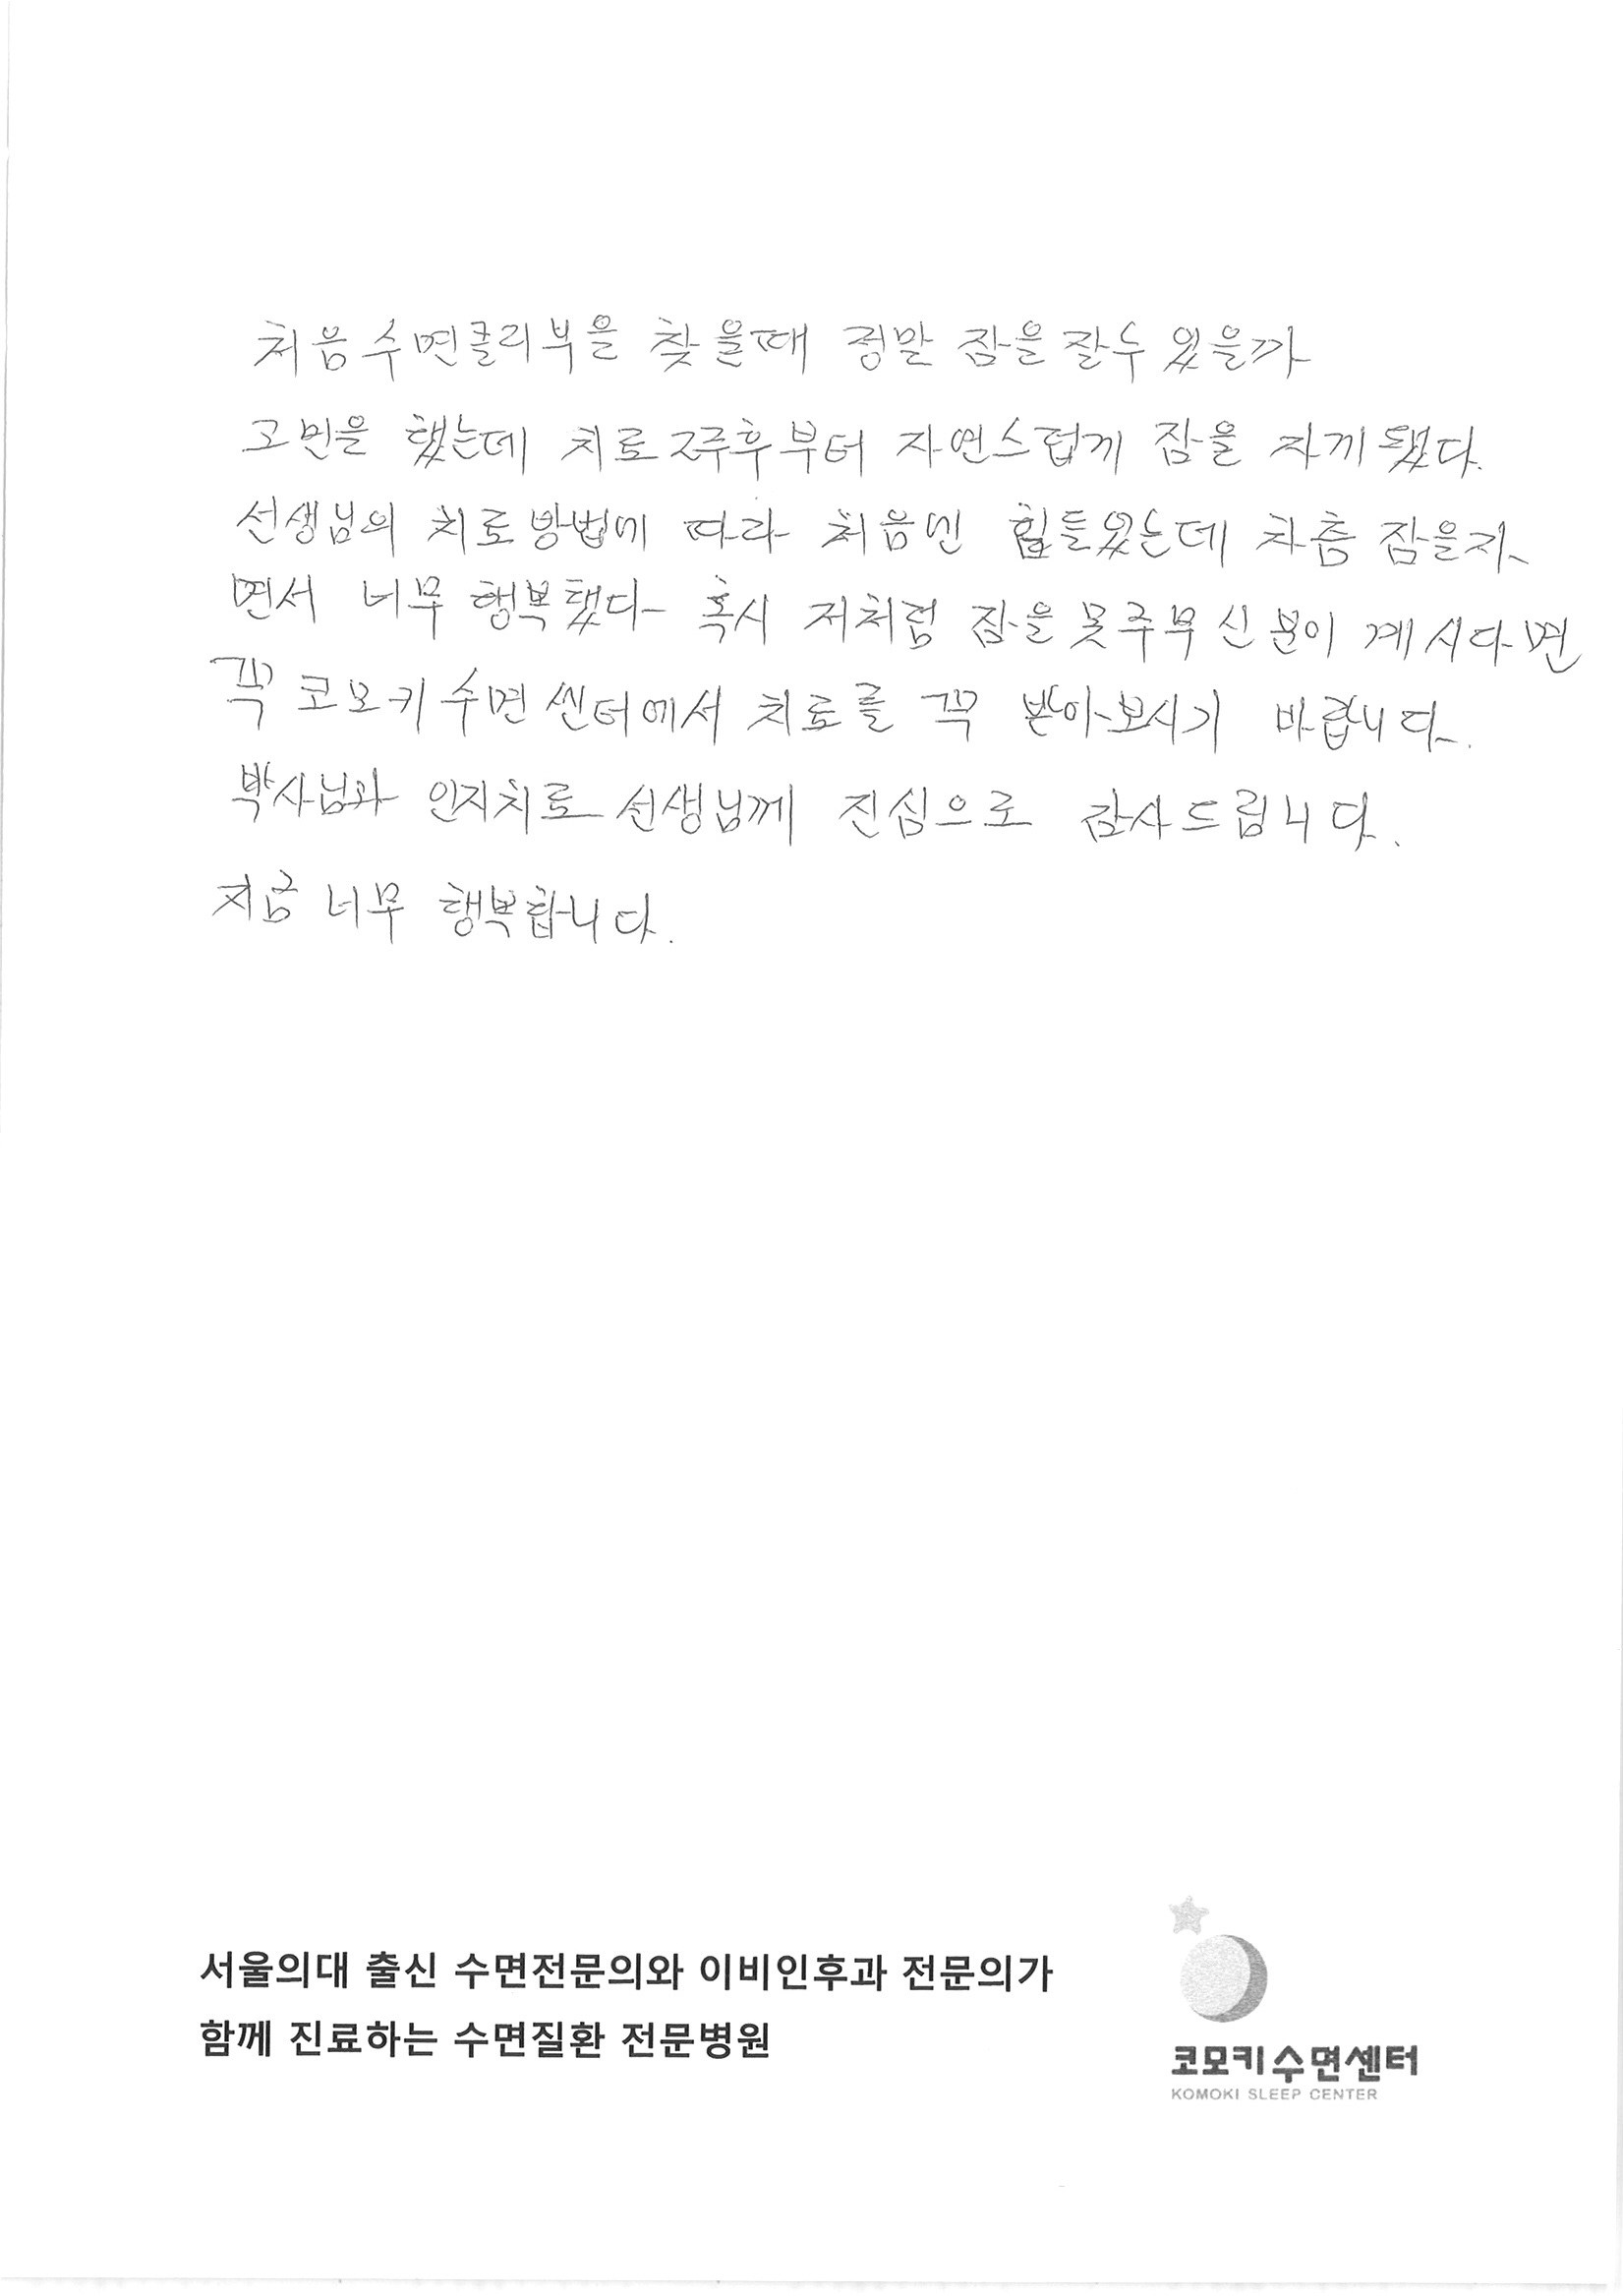 처음 수면클리부을 찾을때 정말 잠을 잘수 있을까
고민을 했는데 치료 2주후부터 자연스럽게 잠을 자게 됐다.
선생님의 치료방법에 따라 처음엔 힘들었는데 차츰 잠을자
면서 너무 행복했다 혹시 저처럼 잠을 못주무신 분이 계시다면
꼭 코모키 수면 쎈터에서 치료를 꼭 받아보시기 바랍니다.
박사님과 인지치료 선생님께 진심으로 감사드립니다.
지금 너무 행복합니다.
서울의대 출신 수면전문의와 이비인후과 전문의가
함께 진료하는 수면질환 전문병원
코모키수면센터
KOMOKI SLEEP CENTER